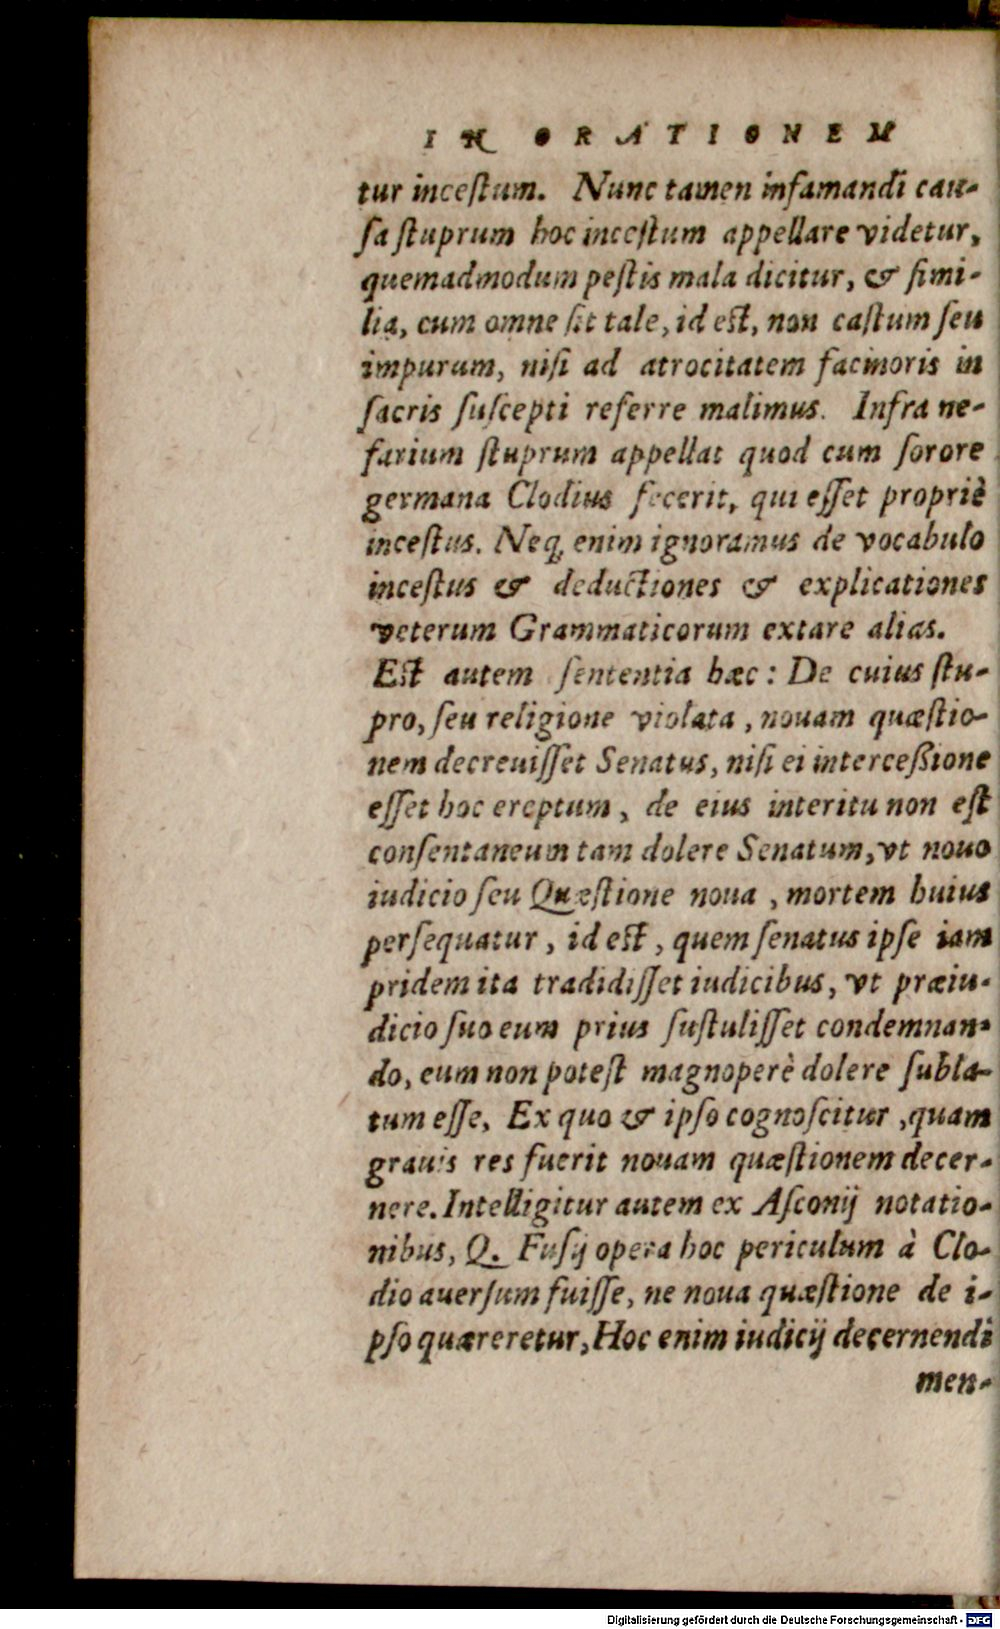 IN ORATIONEM
tur incestum. Nunc tamen infamandi cau-
sa stuprum hoc incestum appellare videtur,
quemadmodum pestis mala dicitur, & simi-
lia, cum omne sit tale, id est, non castum seu
impurum, nisi ad atrocitatem facinoris in
sacris suscepti referre malimus. Infra ne-
farium stuprum appellat quod cum sorore
germana Clodius fecerit, qui esset propriè
incestus. Neq; enim ignoramus de vocabulo
incestus & deductiones & explicationes
veterum Grammaticorum extare alias.
Est autem sententia hæc: De cuius stu-
pro, seu religione violata, nouam quæstio-
nem decreuisset Senatus, nisi ei interceßione
esset hoc ereptum, de eius interitu non est
consentaneum tam dolere Senatum, vt nouo
iudicio seu Quæstione noua, mortem huius
persequatur, id est, quem senatus ipse iam
pridem ita tradidisset iudicibus, vt præiu-
dicio suo eum prius sustulisset condemnan-
do, eum non potest magnoperè dolere subla-
tum esse. Ex quo & ipso cognoscitur, quam
grauis res fuerit nouam quæstionem decer-
nere. Intelligitur autem ex Asconij notatio-
nibus, Q. Fusij opera hoc periculum à Clo-
dio auersum fuisse, ne noua quæstione de i-
pso quæreretur, Hoc enim iudicij decernendi
men-
Digitalisierung gefördert durch die Deutsche Forschungsgemeinschaft - DFG